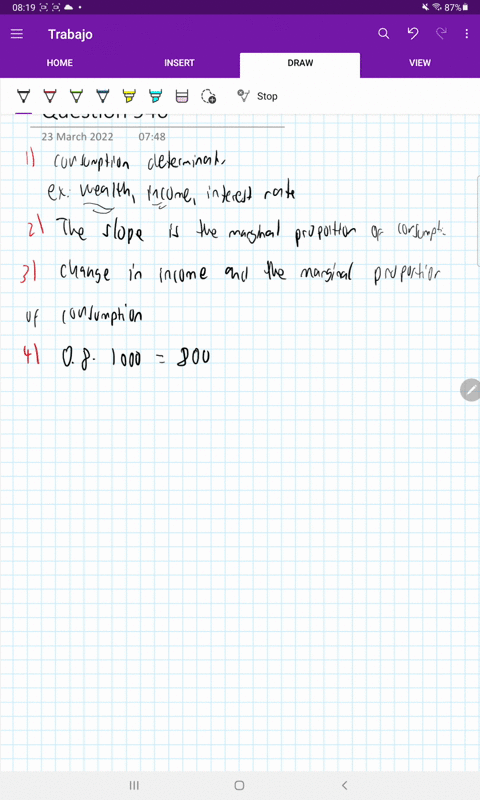 08:19 87%
Trabajo
HOME INSERT DRAW VIEW
Stop
Question 540
23 March 2022 07:48
1) consumption determinant,
ex: wealth, income, interest rate
2) The slope is the marginal proportion of consumpti
3) change in income and the marginal proportion
of consumption
4) 0.8. 1000 = 800